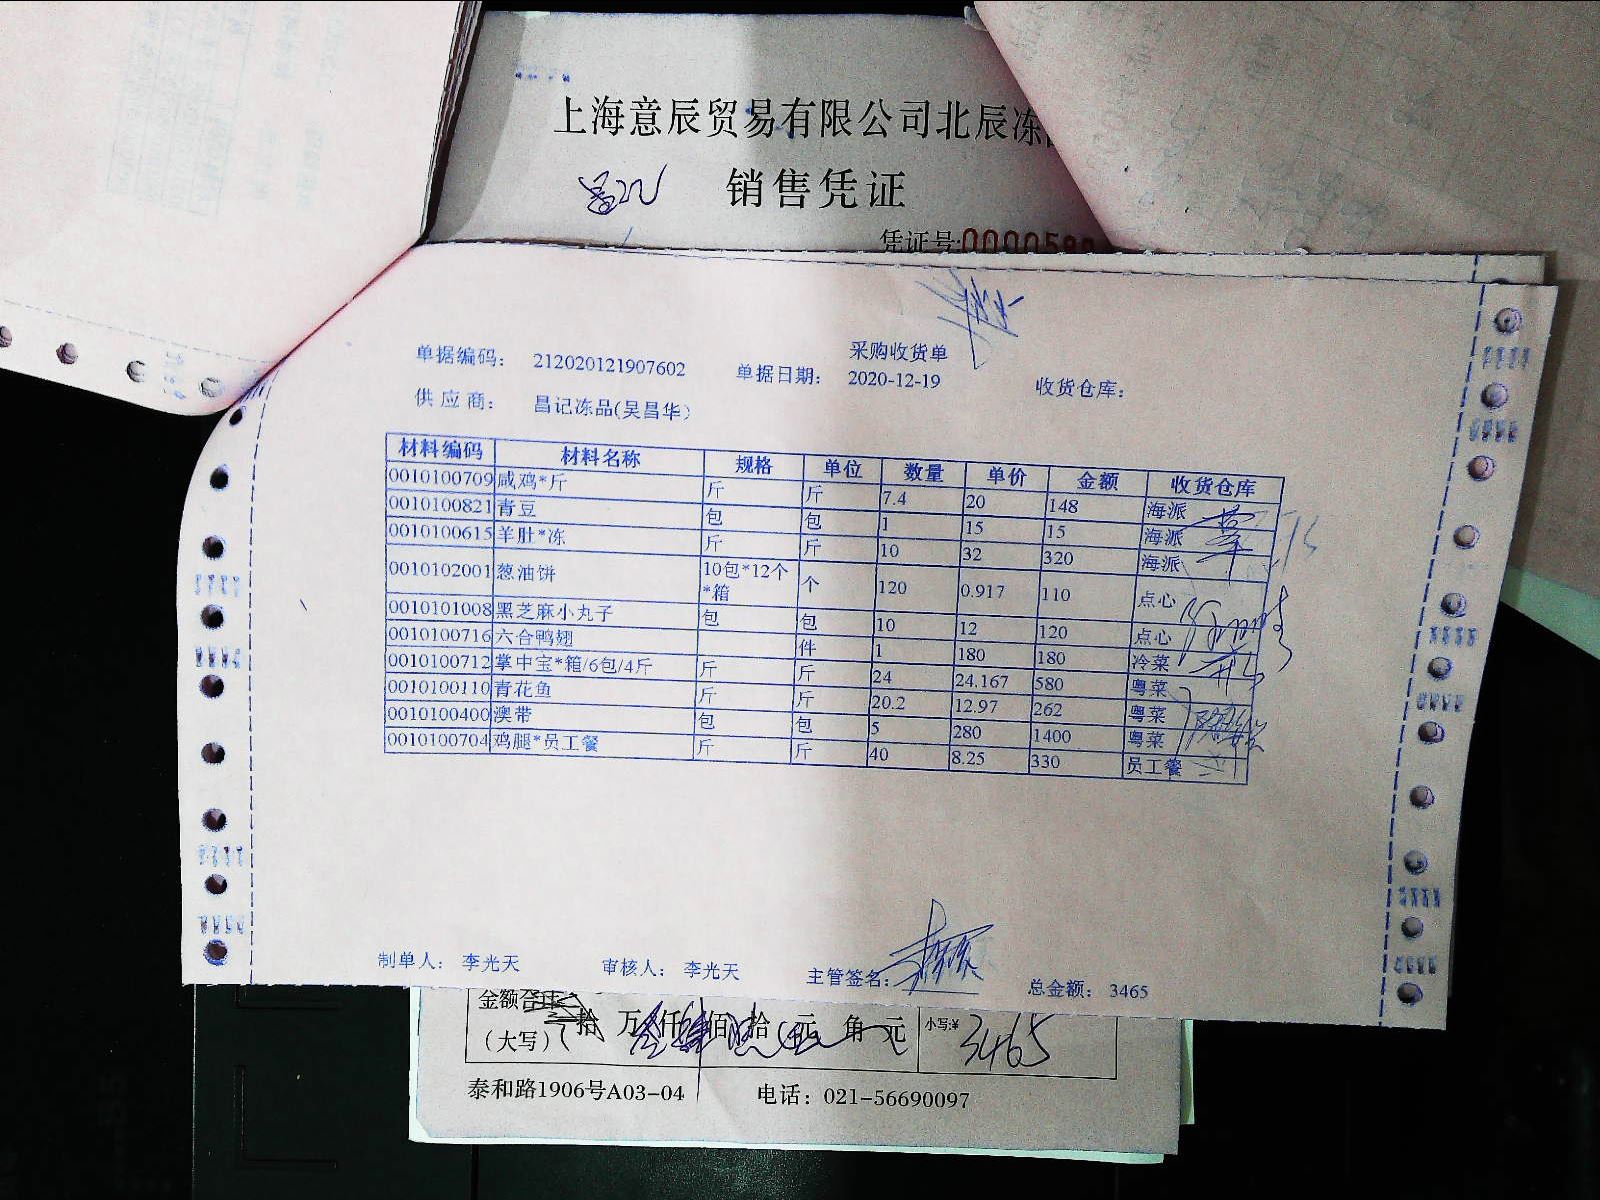 上海意辰贸易有限公司北辰冻
销售凭证
凭证号:0000580
采购收货单
单据编码： 212020121907602 单据日期： 2020-12-19 收货仓库：
供应商： 昌记冻品(吴昌华)
材料编码 材料名称 规格 单位 数量 单价 金额 收货仓库
0010100709 咸鸡*斤 斤 斤 7.4 20 148 海派
0010100821 青豆 包 包 1 15 15 海派
0010100615 羊肚*冻 斤 斤 10 32 320 海派
0010102001 葱油饼 10包*12个*箱 个 120 0.917 110 点心
0010101008 黑芝麻小丸子 包 包 10 12 120 点心
0010100716 六合鸭翅 件 1 180 180 冷菜
0010100712 掌中宝*箱/6包/4斤 斤 斤 24 24.167 580 粤菜
0010100110 青花鱼 斤 斤 20.2 12.97 262 粤菜
0010100400 澳带 包 包 5 280 1400 粤菜
0010100704 鸡腿*员工餐 斤 斤 40 8.25 330 员工餐
制单人： 李光天 审核人： 李光天 主管签名： 总金额： 3465
金额合
（大写） 拾 万 仟 佰 拾 元 角 元 小写:¥ 3465
泰和路1906号A03-04 电话：021-56690097